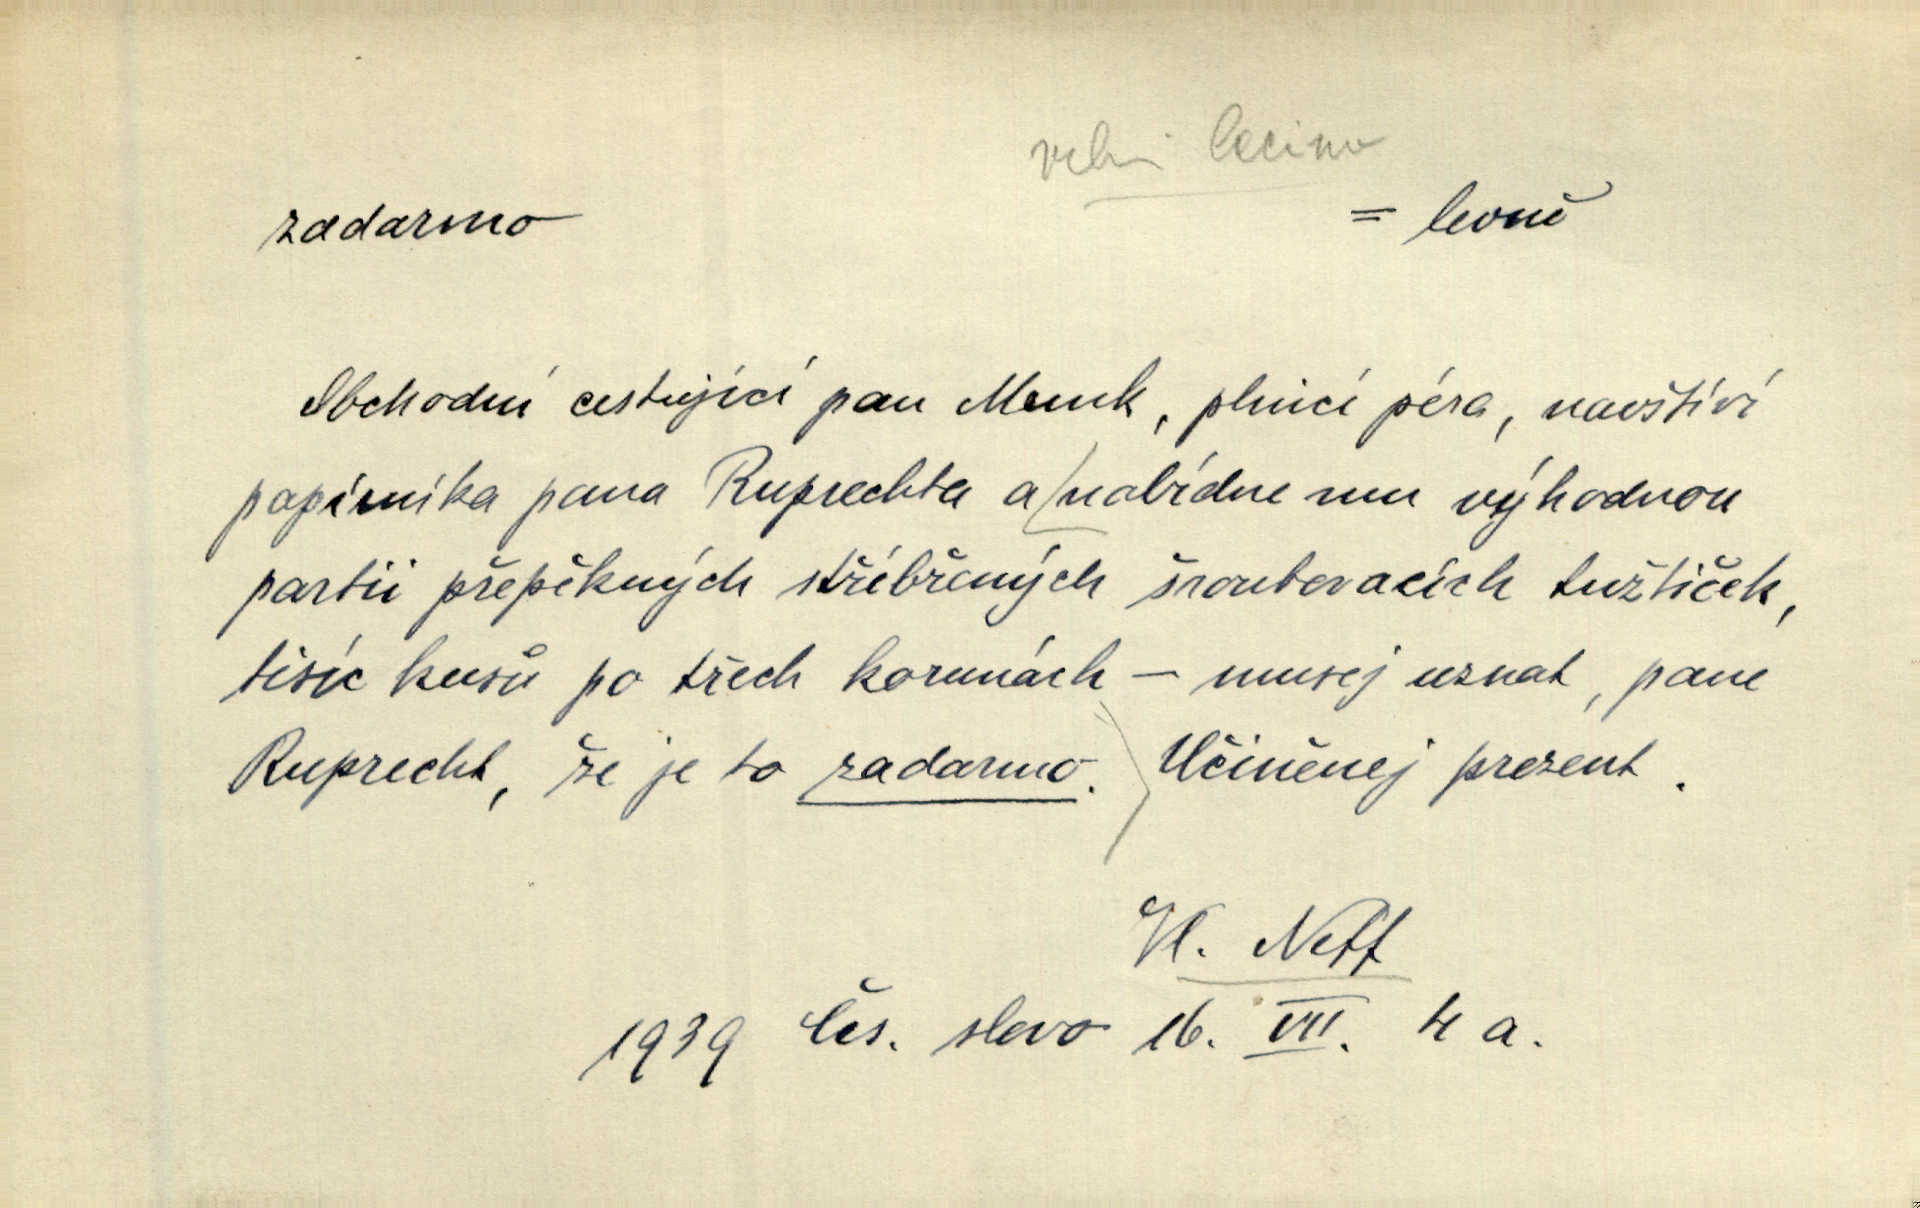 velmi lacino
zadarmo = levně
Obchodní cestující pan Munk, plnicí péra, navštíví
papírníka pana Ruprechta a nabídne mu výhodnou
partii přepěkných stříbřených šroubovacích tužtiček,
tisíc kusů po třech korunách – musej uznat, pane
Ruprecht, že je to zadarmo. Učiněnej prezent.
Vl. Neff
1939 Čes. slovo 16. VII. 4 a.